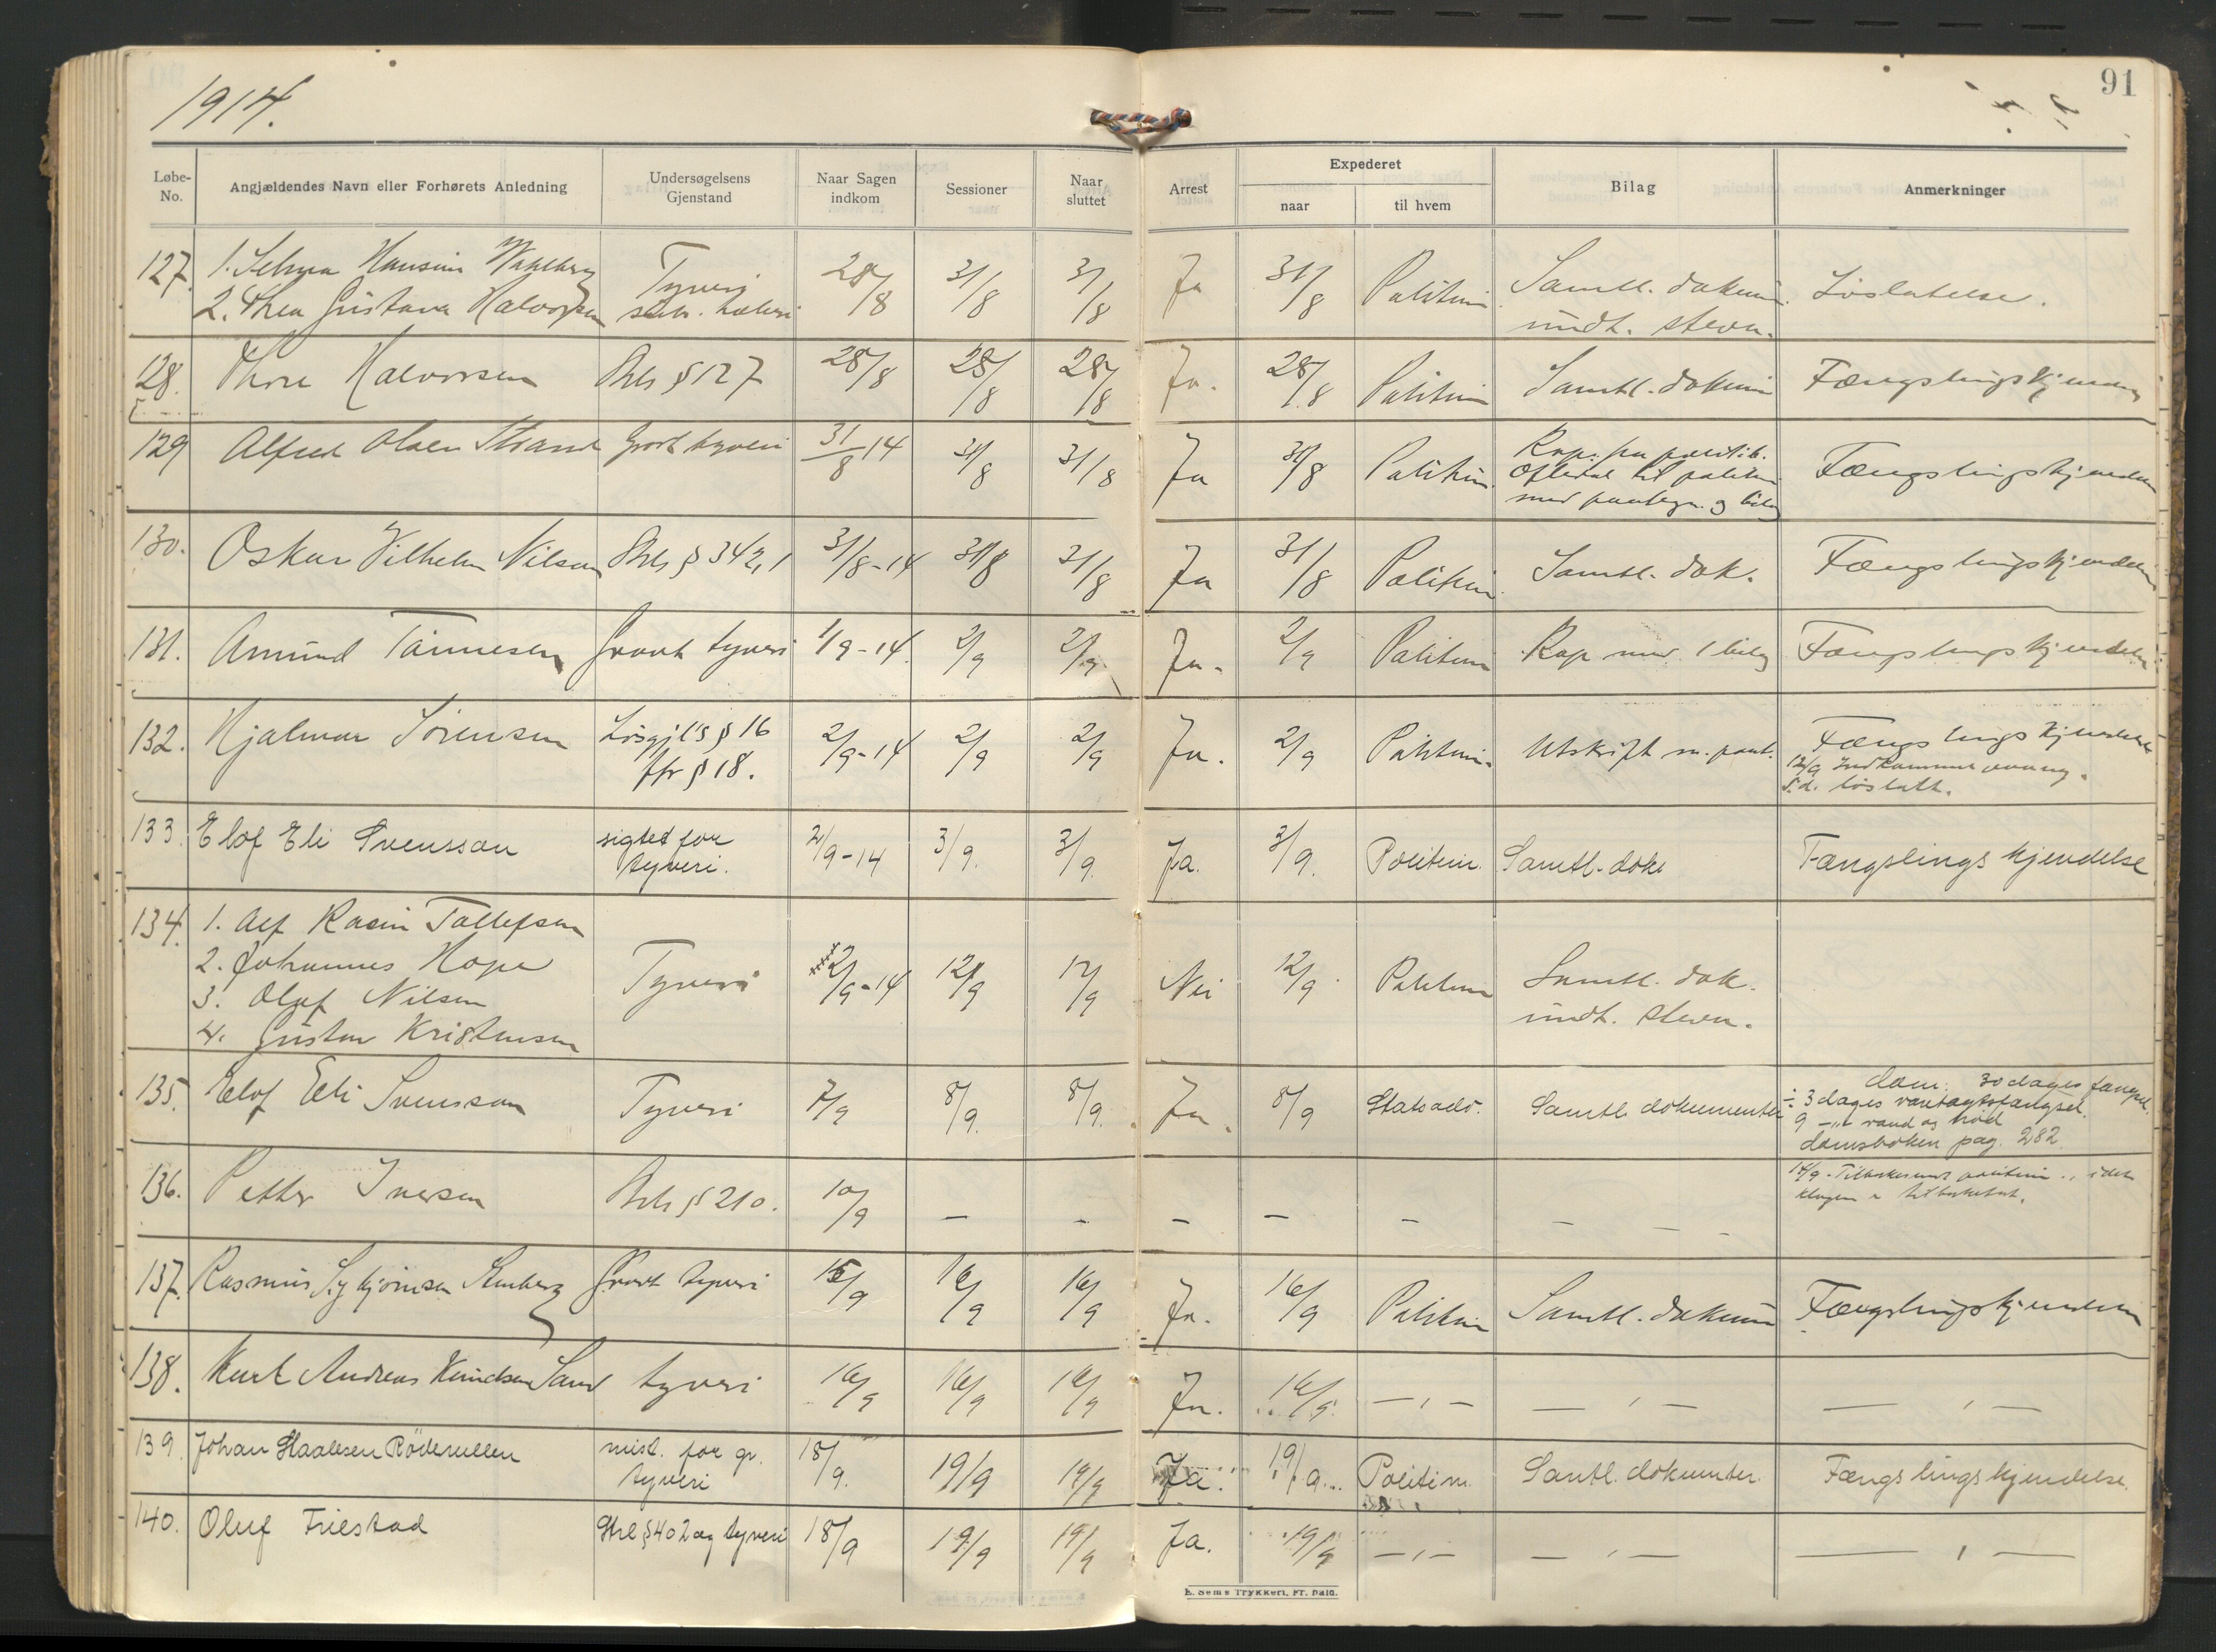 1914.
91
Løbe-No.
Angjældendes Navn eller Forhørets Anledning
Undersøgelsens Gjenstand
Naar Sagen indkom
Sessioner
Naar sluttet
Arrest
Expederet
naar
til hvem
Bilag
Anmerkninger
127. 1. Selma Hansine Tyveri 28/8 31/8 31/8 Ja 31/8 Politim Samtl. dokum. Løslatelse.
2. Thea Gustava Halvorsen undt. stevn.
128. Thore Halvorsen Strls § 127 28/8 28/8 28/8 Ja. 28/8 Politim Samtl. dokum Fængslingskjendelse
129 Alfred Olsen Strand Grovt tyveri 31/8 14 31/8 31/8 Ja 31/8 Politim. Rap. fra politib.
Oftedal til politim
med paategn. og bilag
Fængslingskjendelse
130. Oskar Vilhelm Nilsen Strls § 342,1 31/8-14 31/8 31/8 Ja 31/8 Politim Samtl. dok. Fængslingskjendelse
131. Amund Tønnesen Grovt tyveri 1/9-14. 2/9 2/9 Ja. 2/9 Politim Rap med 1 bilag Fængslingskjendelse
132. Hjalmar Sørensen Løsgjl's § 16 2/9-14 2/9 2/9 Ja. 2/9 Politim. Utskrift m. paat. Fængslingskjendelse
jfr § 18. 12/9
s.d. løslatt.
133. Elof Eli Svensson sigtet for tyveri. 2/9-14 3/9. 3/9. Ja. 3/9. Politim. Samtl. dok. Fængslingskjendelse
134. 1. Alf Rasin Tallefsen
2. Johannes Hope
3. Olaf Nilsen
4. Gustav Kristensen
Tyveri 2/9-14 12/9 12/9 Nei 12/9 Politim Samtl. dok.
undt. stevn.
135. Elof Eli Svensson Tyveri 7/9 8/9. 8/9. Ja. 8/9 Statsadv. Samtl. dokumenter dom: 30 dages fængsel.
÷ 3 dages varetægtsfængsel.
9 -"- vand og brød
domsboken pag. 282.
136. Petter Iversen Strls § 210. 10/9 – – – – – – – – 14/9. Tilbakesendt politim., idet
klagen er tilbaketat.
137. Rasmus Grovt tyveri 15/9 16/9 16/9 Ja. 16/9 Politim Samtl. dokum Fængslingskjendelse
138. Kurt Andreas Knudsen Sand tyveri 16/9 16/9 16/9 Ja. 16/9. — " — — " — — " —
139. Johan Staalesen mist. for gr. tyveri 18/9. 19/9 19/9 Ja. 19/9 Politim. Samtl. dokumenter. Fængslingskjendelse.
140. Oluf Friestad Strl § 402 og tyveri 18/9 19/9 19/9 Ja. 19/9 — " — — " — — " —
E. Sems Trykkeri, Fr.hald.